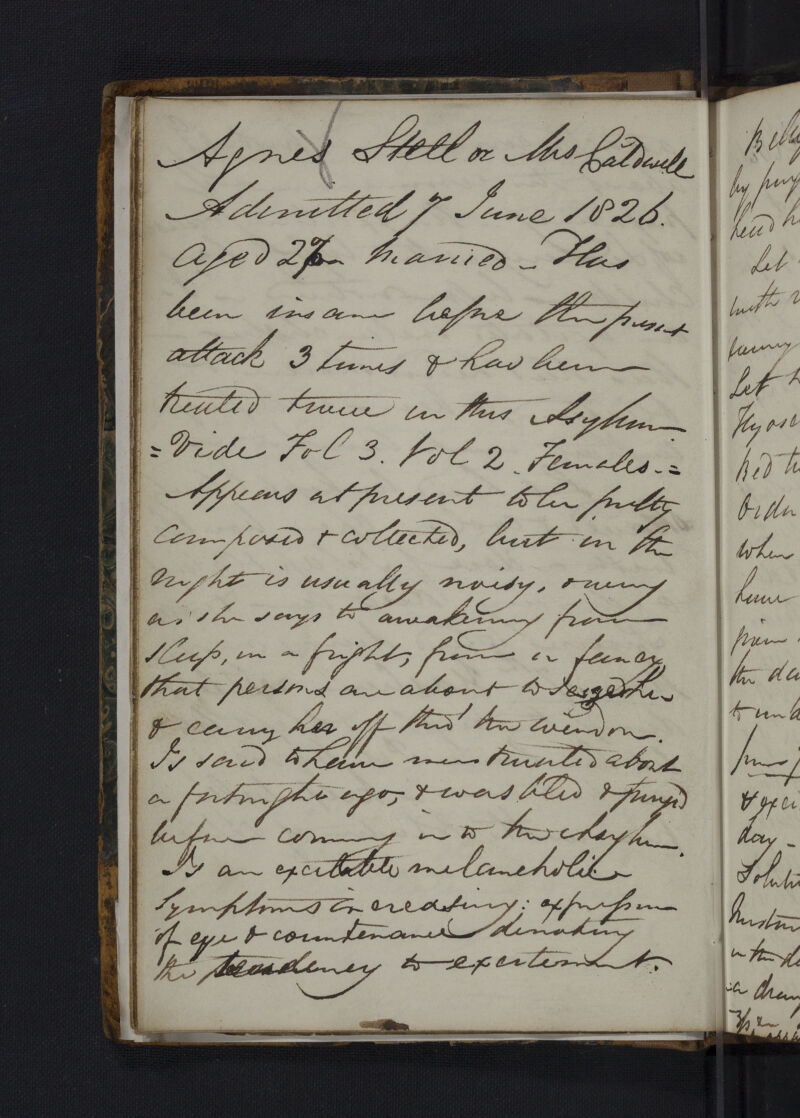 Agnes Stell or Mrs Caldwell
Admitted 7 June 1826.
aged 27 married - Has
been insane before the present
attack 3 times & has been
treated twice in this Asylum
= Vide Fol 3. Vol 2. Females. =
Appears at present to be pretty
composed & collected, but in the
night is usually noisy, owing
as she says to awakening from
sleep, in a fright, from a fancy
that persons are about to seize her
& carry her off thro' the window.
Is said to have menstruated about
a fortnight ago, & was bled & purged
before coming in to the Asylum.
Is an excitable melancholic
Symptoms increasing: expression
of eye & countenance denoting
the tendency to excitement.
by
head
Let
with
Let
Hyosc
Bed
Order
when
have
given
the da
to
& exci
day -
Soluti
in the
a